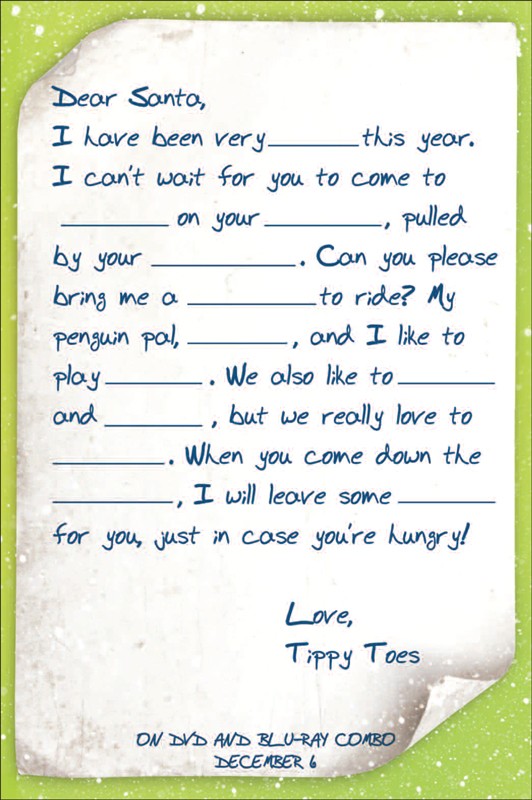 Dear Santa,
I have been very_________this year.
I can't wait for you to come to
___________ on your ____________, pulled
by your _______________. Can you please
bring me a _____________to ride? My
penguin pal, __________, and I like to
play__________. We also like to__________
and __________, but we really love to
___________. When you come down the
____________, I will leave some __________
for you, just in case you're hungry!
Love,
Tippy Toes
ON DVD AND BLU-RAY COMBO
DECEMBER 6